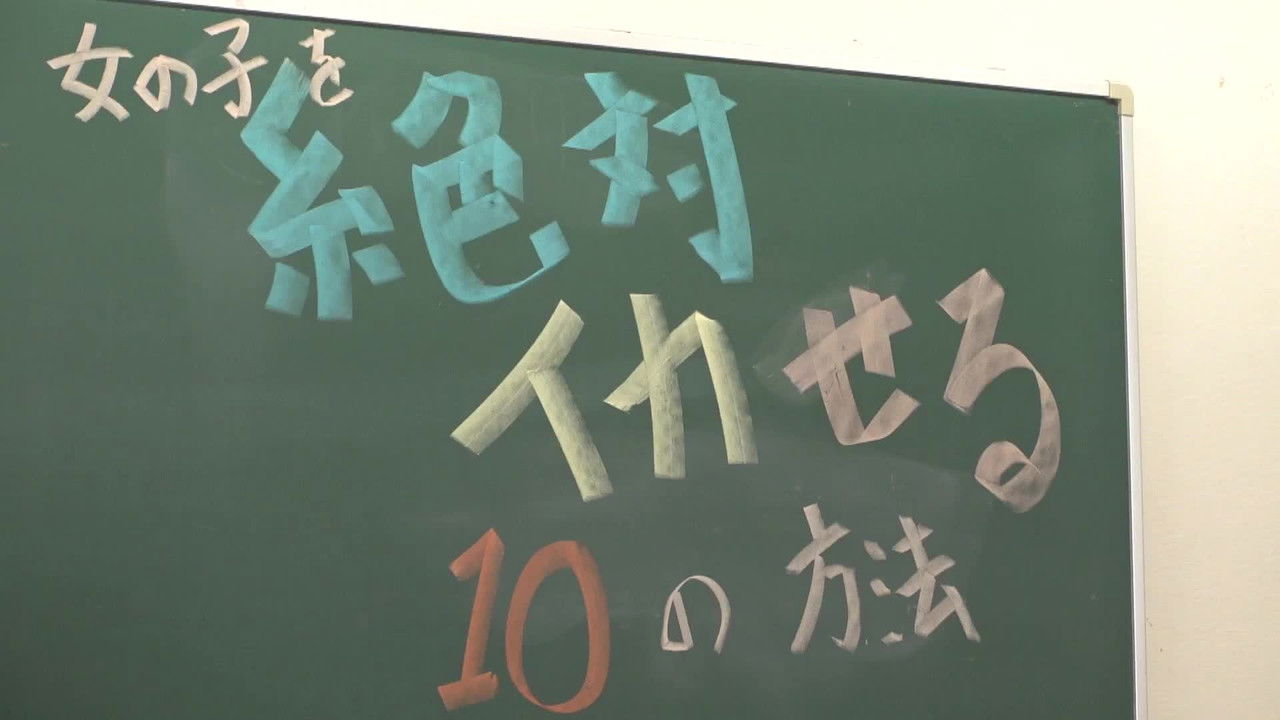 女の子を
絶対
イカせる
10の方法